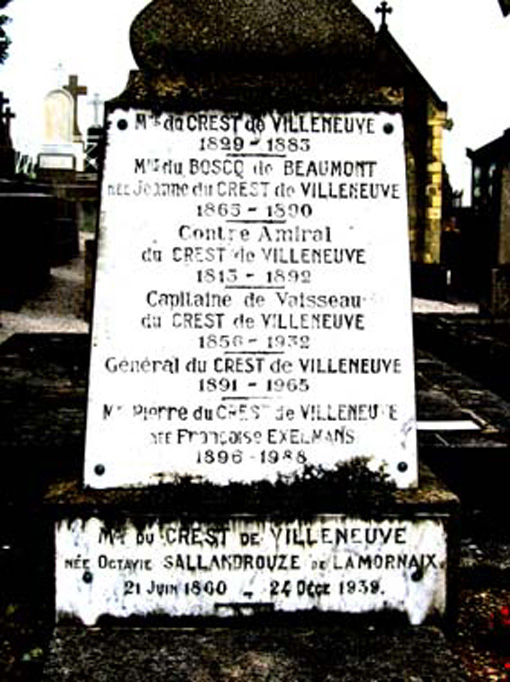 Mise du CREST de VILLENEUVE
1829 - 1883
Mise du BOSCQ de BEAUMONT
NÉE Jeanne du CREST de VILLENEUVE
1865 - 1890
Contre Amiral
du CREST de VILLENEUVE
1813 - 1892
Capitaine de Vaisseau
du CREST de VILLENEUVE
1856 - 1932
Général du CREST de VILLENEUVE
1891 - 1965
Pierre du CREST de VILLENEUVE
NÉE Françoise EXELMANS
1896 - 1988
DU CREST DE VILLENEUVE
NÉE OCTAVIE SALLANDROUZE DE LAMORNAIX
21 JUIN 1860 - 24 DÉCE 1939.